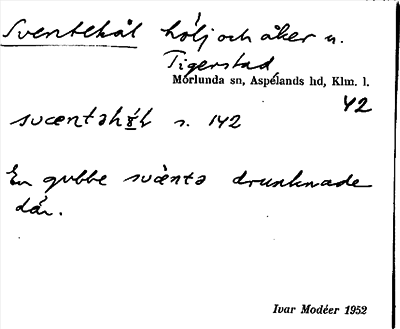 Sventehål hölj och åker u.
Tigerstad
Mörlunda sn, Aspelands hd, Klm. l.
42
s. 142
En gubbe svèntə drunknade
där.
Ivar Modéer 1952